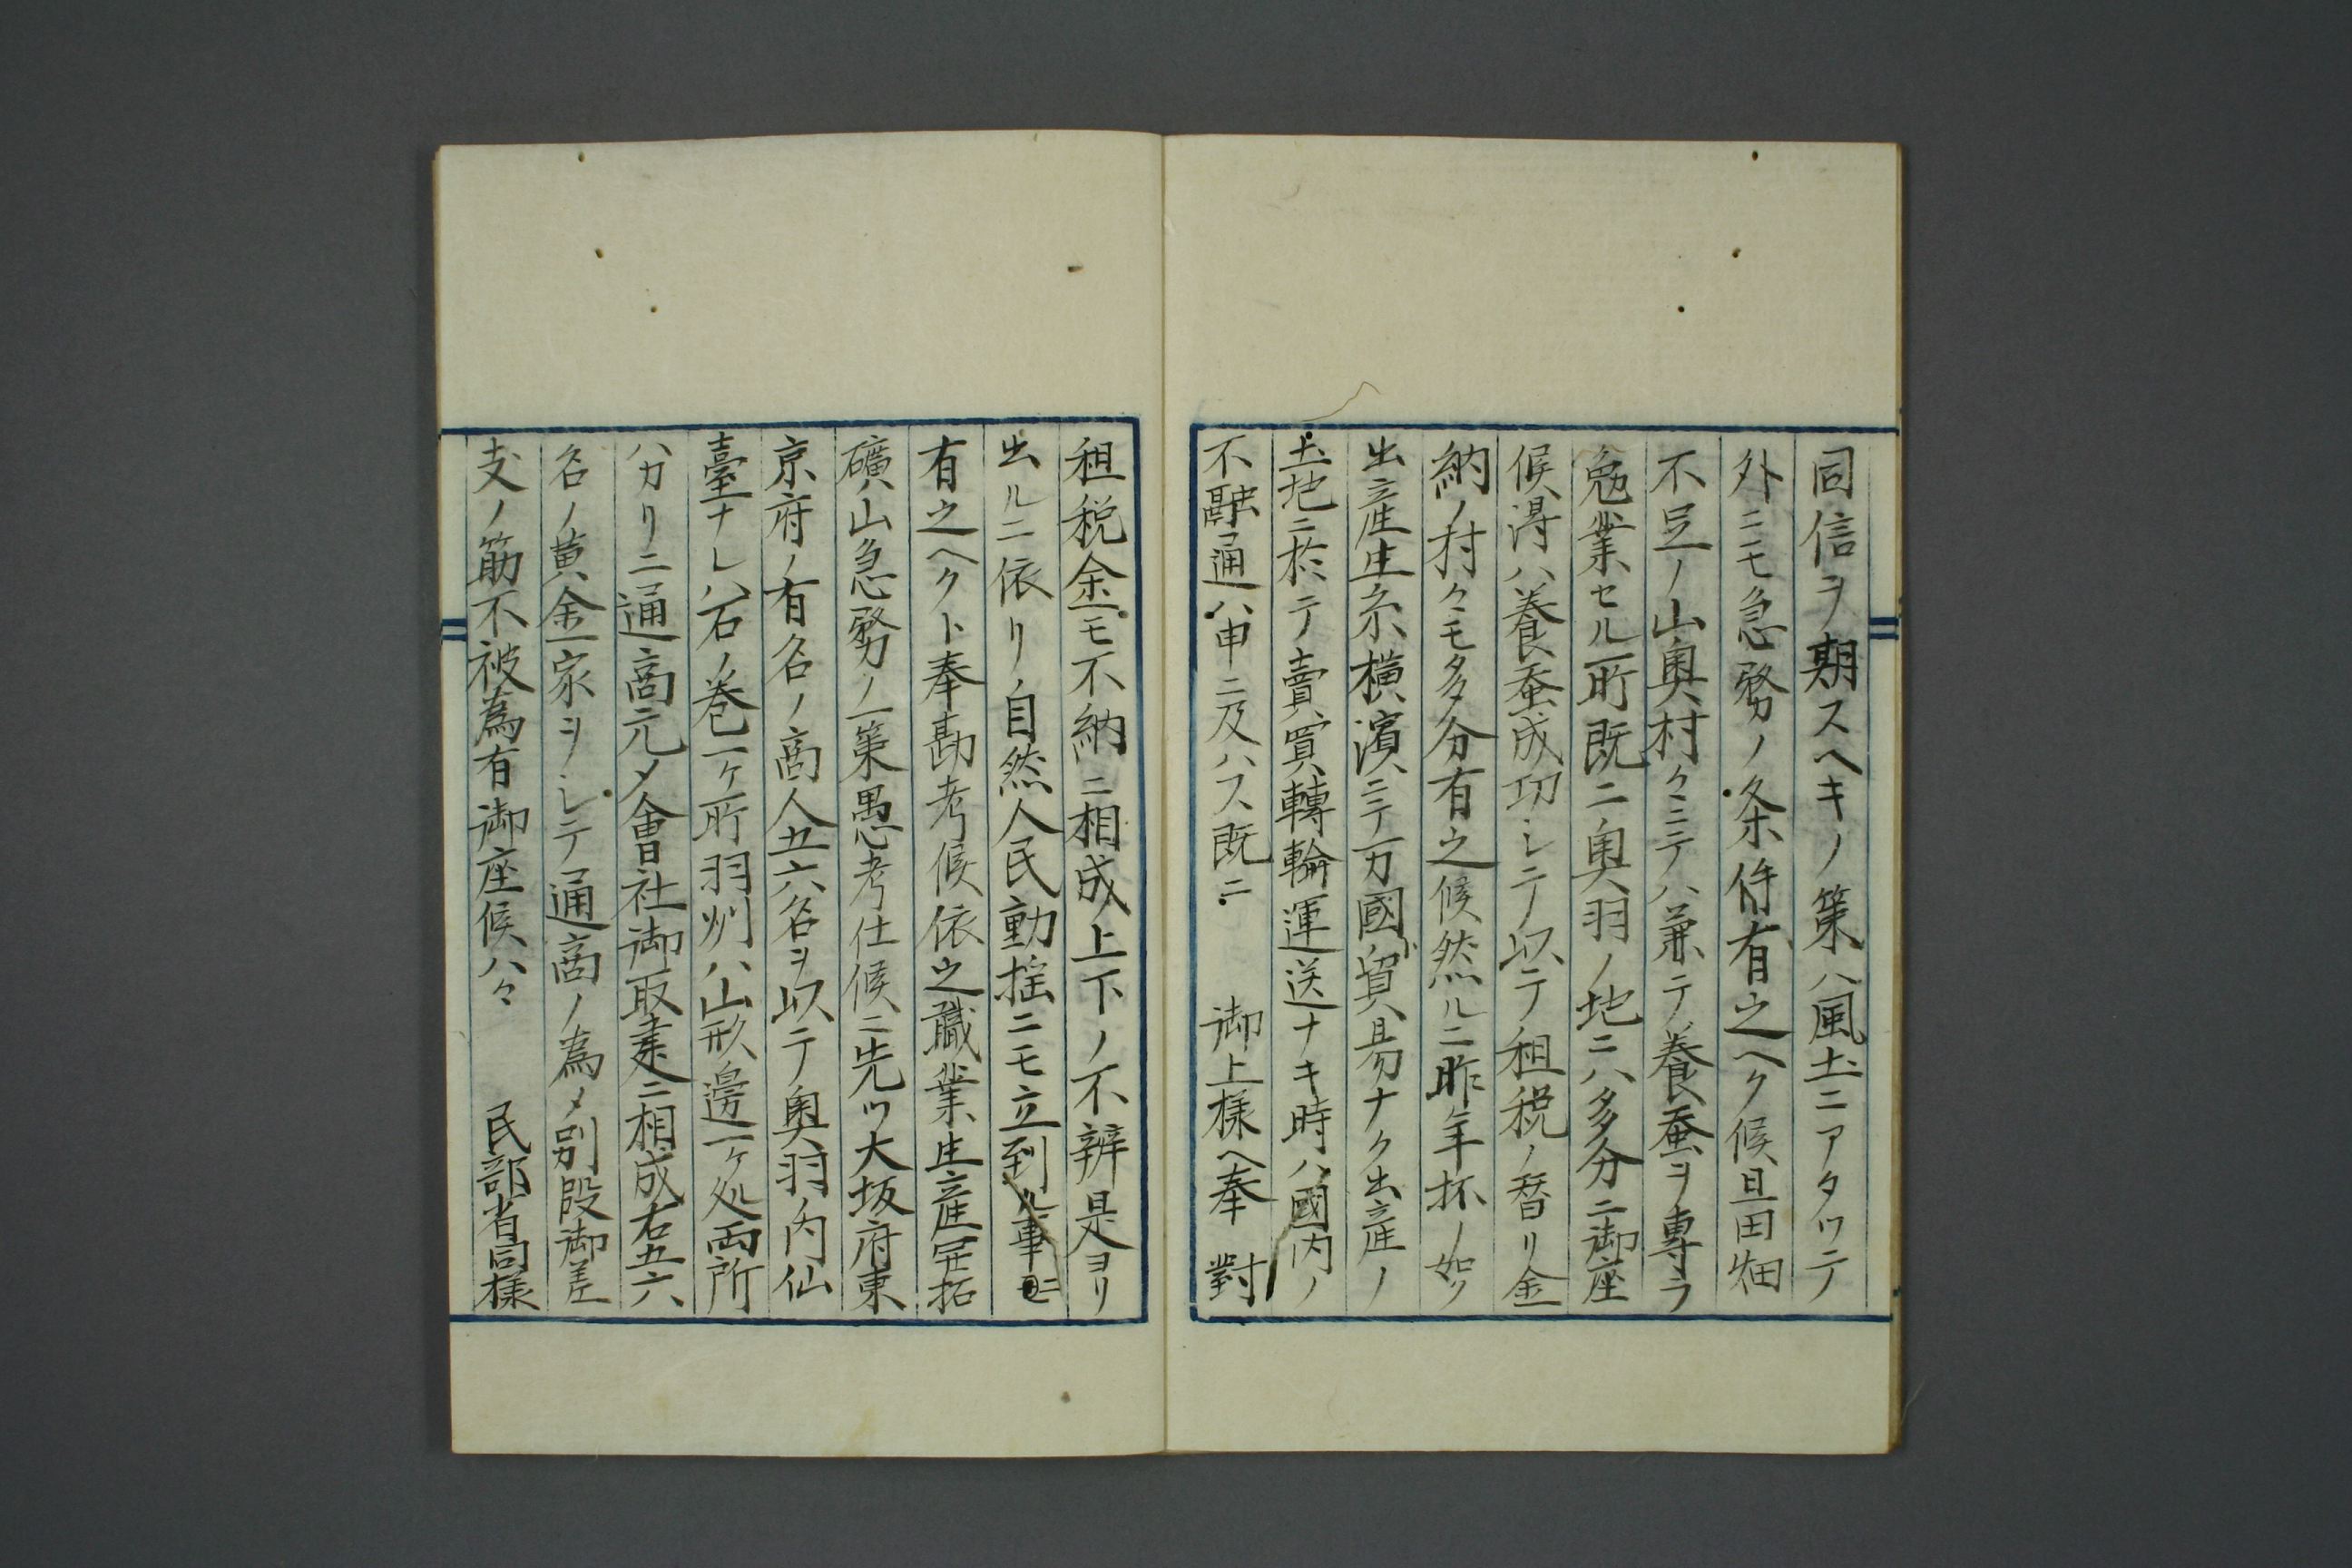 同信ヲ期スヘキノ策ハ風土ニアタツテ
外ニモ急務ノ条件有之ヘク候且田畑
不足ノ山奥村々ニテハ兼テ養蚕ヲ専ラ
勉業セル所既ニ奥羽ノ地ニハ多分ニ御座
候得ハ養蚕成功シテ以テ租税ノ替リ金
納ノ村々モ多分有之候然ルニ昨年抔ノ如ク
出産生糸横濱ニテ万國貿易ナク出産ノ
土地ニ於テ賣買轉輪運送ナキ時ハ國内ノ
不融通ハ申ニ及ハス既ニ 御上様ヘ奉對
租税金モ不納ニ相成上下ノ不辨是ヨリ
出ルニ依リ自然人民動揺ニモ立到ル事ニ
有之ヘクト奉勘考候依之職業生産開拓
礦山急務ノ一策愚考仕候ニ先ツ大坂府東
京府ノ有名ノ商人五六名ヲ以テ奥羽内仙
臺ナレハ石ノ巻一ケ所羽州ハ山形邊一ケ処両所
ハカリニ通商元メ會社御取建ニ相成右五六
名ノ黄金家ヲシテ通商ノ為メ別段御差
支ノ筋不被為有御座候ハヽ 民部省同様